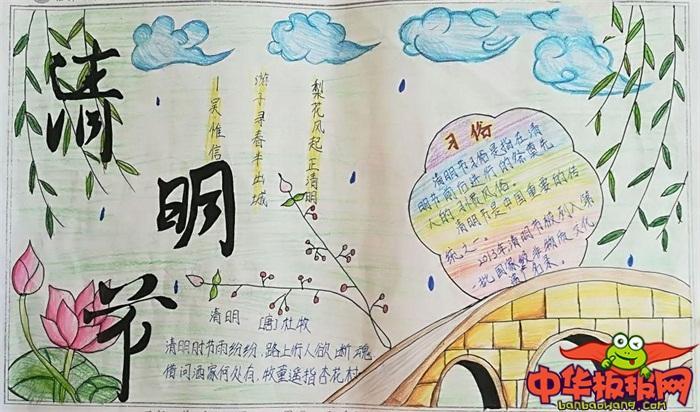 清明节
梨花风起正清明
游子寻春半出城
吴惟信
习俗
清明节习俗是指在清
明节前后进行的祭奠先
人的
风俗。
清明节是中国重要的传
统之一。
2013年清明节被列入第
一批国家级非物质文化
清明
[唐]杜牧
清明时节雨纷纷，路上行人欲断魂
借问酒家何处有，牧童遥指杏花村
中华板报网
banbaowang.com